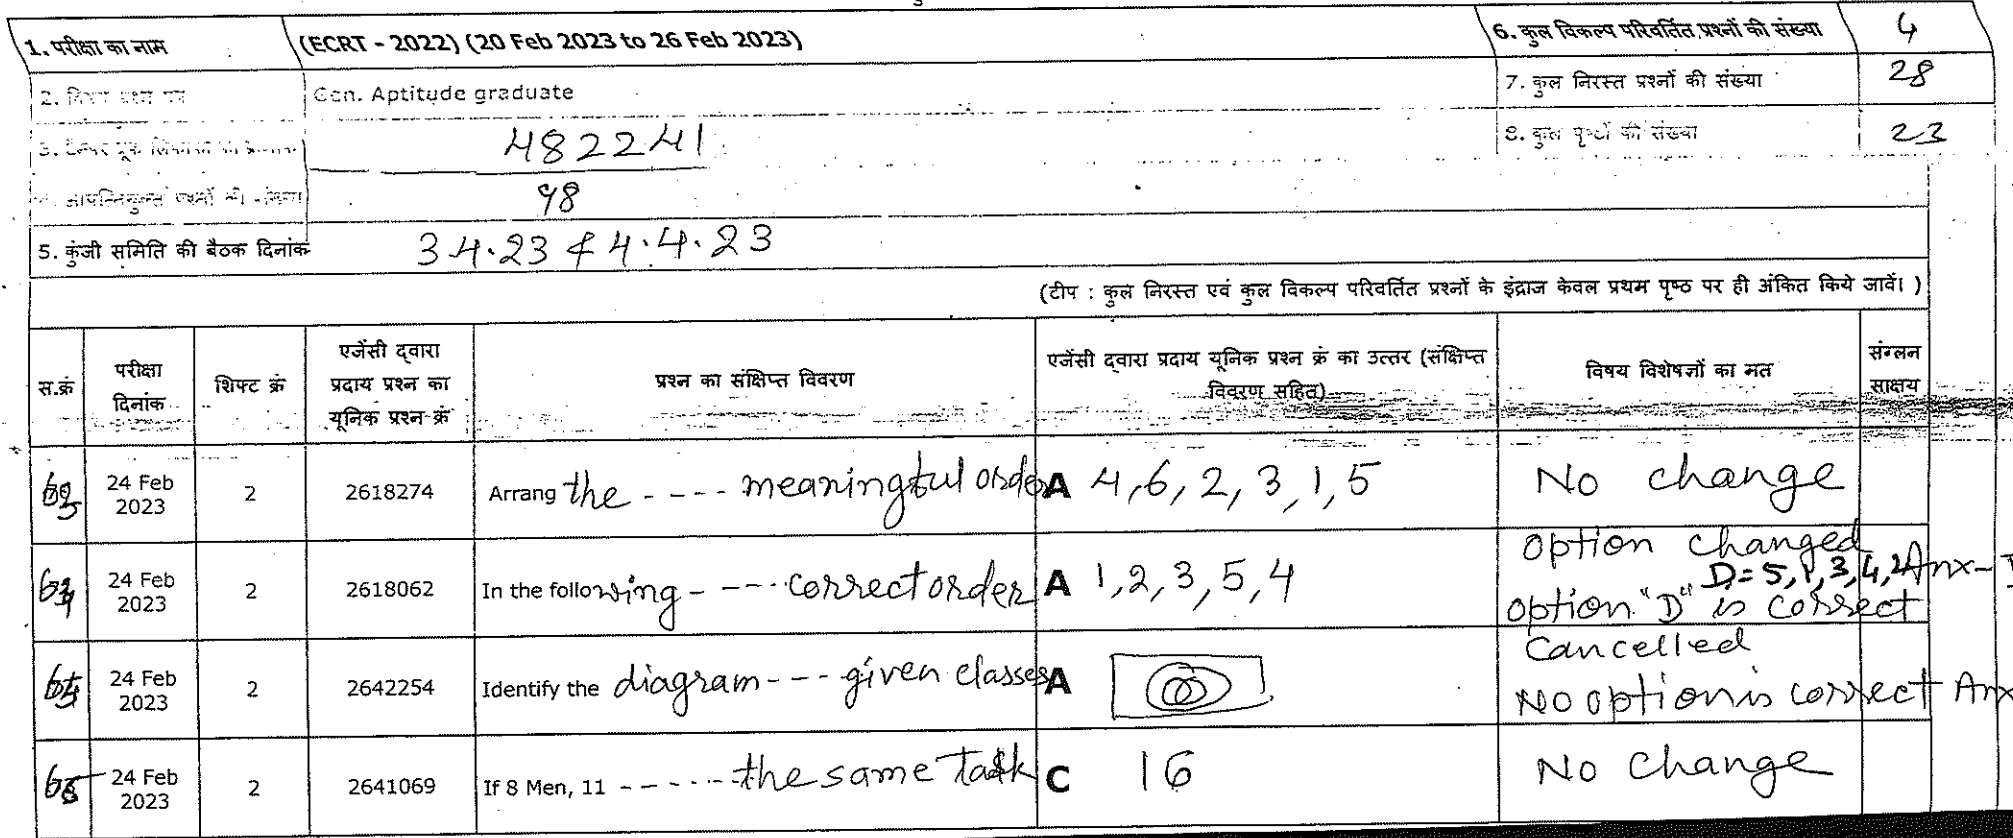 1. परीक्षा का नाम (ECRT - 2022) (20 Feb 2023 to 26 Feb 2023) 6. कुल विकल्प परिवर्तित प्रश्नों की संख्या 4
2. Gen. Aptitude graduate 7. कुल निरस्त प्रश्नों की संख्या 28
3. 482241 8. कुल पृष्ठों की संख्या 23
98
5. कुंजी समिति की बैठक दिनांक 3.4.23 & 4.4.23
(टीप : कुल निरस्त एवं कुल विकल्प परिवर्तित प्रश्नों के इंद्राज केवल प्रथम पृष्ठ पर ही अंकित किये जावें। )
स.क्रं परीक्षा दिनांक शिफ्ट क्रं एजेंसी द्वारा प्रदाय प्रश्न का यूनिक प्रश्न क्रं प्रश्न का संक्षिप्त विवरण एजेंसी द्वारा प्रदाय यूनिक प्रश्न क्रं का उत्तर (संक्षिप्त विवरण सहित) विषय विशेषज्ञों का मत संग्लन साक्षय
24 Feb 2023 2 2618274 Arrang the ---- meaningful order A 4,6,2,3,1,5 No change
24 Feb 2023 2 2618062 In the following ---- correct order A 1,2,3,5,4 option changed D=5,1,3,4,2 option "D" is correct Anx-
24 Feb 2023 2 2642254 Identify the diagram --- given classes A Cancelled No option is correct Anx
24 Feb 2023 2 2641069 If 8 Men, 11 ------ the same task C 16 No change